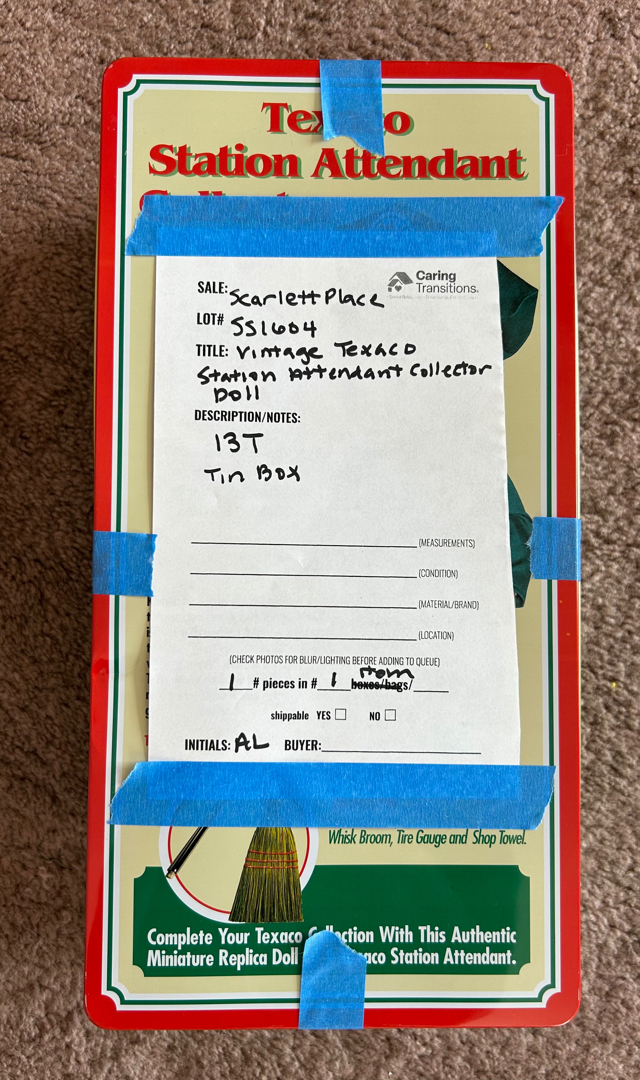 Station Attendant
Caring
Transitions.
SALE: Scarlett Place
LOT# SS1604
TITLE: Vintage Texaco
Station Attendant Collector
Doll
DESCRIPTION/NOTES:
13T
Tin Box
(MEASUREMENTS)
(CONDITION)
(MATERIAL/BRAND)
(LOCATION)
(CHECK PHOTOS FOR BLUR/LIGHTING BEFORE ADDING TO QUEUE)
Item
1 # pieces in # 1 boxes/bags/
shippable YES NO
INITIALS: AL BUYER:
Whisk Broom, Tire Gauge and Shop Towel.
Complete Your Texaco With This Authentic
Miniature Replica Doll Station Attendant.